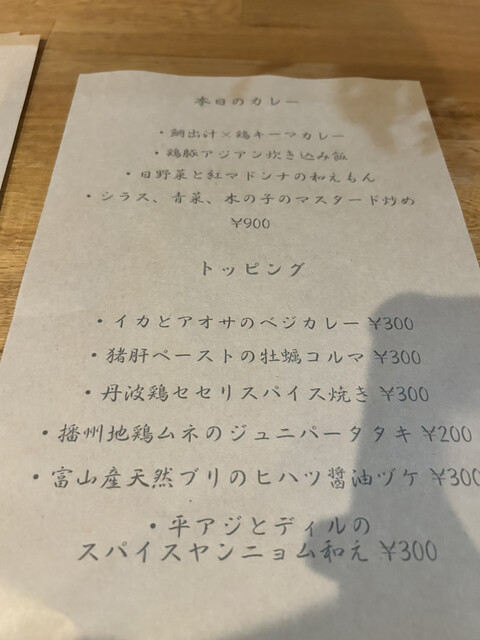 本日のカレー
・鯛出汁×鶏キーマカレー
・鶏豚アジアン炊き込み飯
・日野菜と紅マドンナの和えもん
・シラス、青菜、木の子のマスタード炒め
¥900
トッピング
・イカとアオサのベジカレー ¥300
・猪肝ペーストの牡蠣コルマ ¥300
・丹波鶏セセリスパイス焼き ¥300
・播州地鶏ムネのジュニパータタキ ¥200
・富山産天然ブリのヒハツ醤油ヅケ ¥300
・平アジとディルの
スパイスヤンニョム和え ¥300